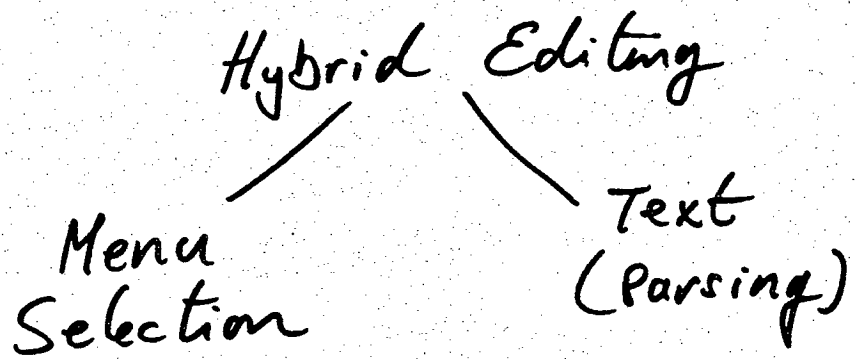 Hybrid Editing
Menu
Selection
Text
(Parsing)